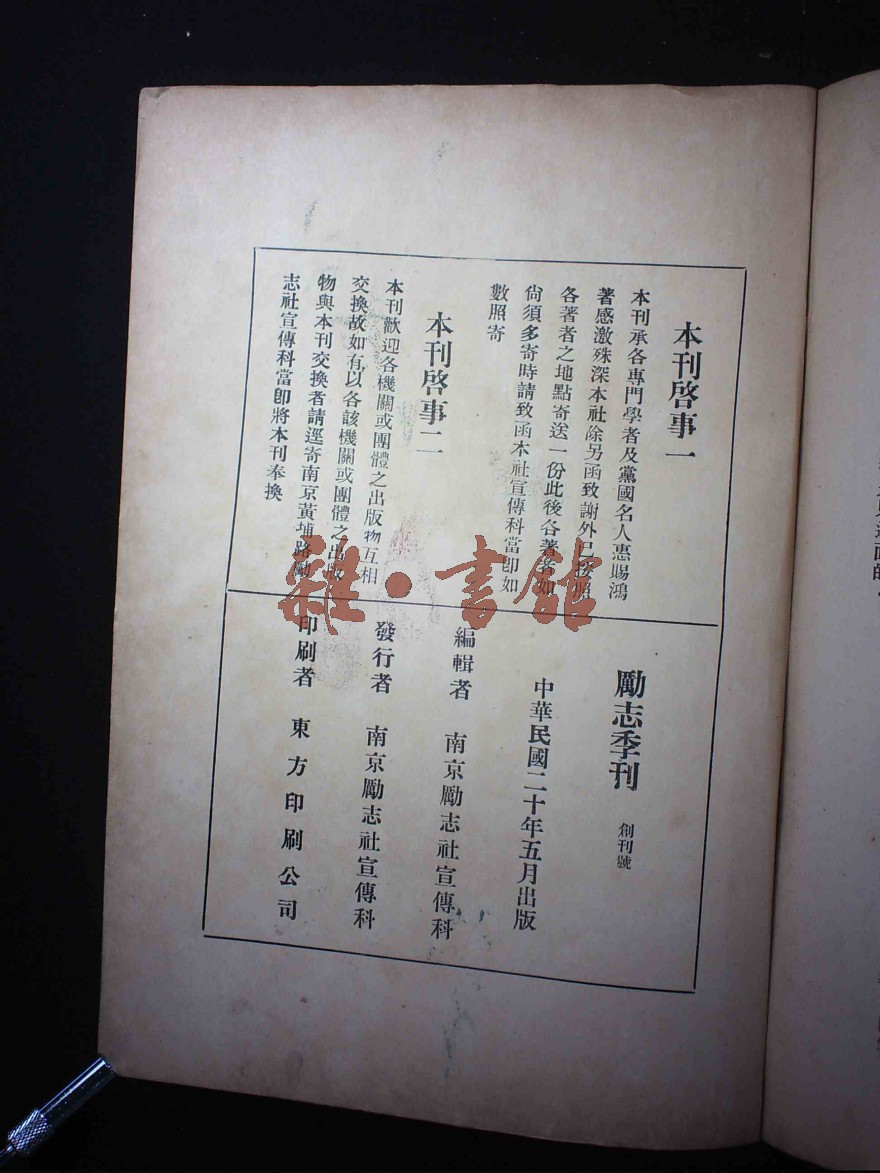 本刊啓事一
本刊承各專門學者及黨國名人惠賜鴻
著感激殊深本社除另函致謝外已按照
各著者之地點寄送一份此後各著者如
尙須多寄時請致函本社宣傳科當即如
數照寄
本刊啓事二
本刊歡迎各機關或團體之出版物互相
交換故如有以各該機關或團體之出版
物與本刊交換者請逕寄南京黃埔路勵
志社宣傳科當卽將本刊奉換
勵志季刊 創刊號
中華民國二十年五月出版
編輯者 南京勵志社宣傳科
發行者 南京勵志社宣傳科
印刷者 東方印刷公司
雜·書館